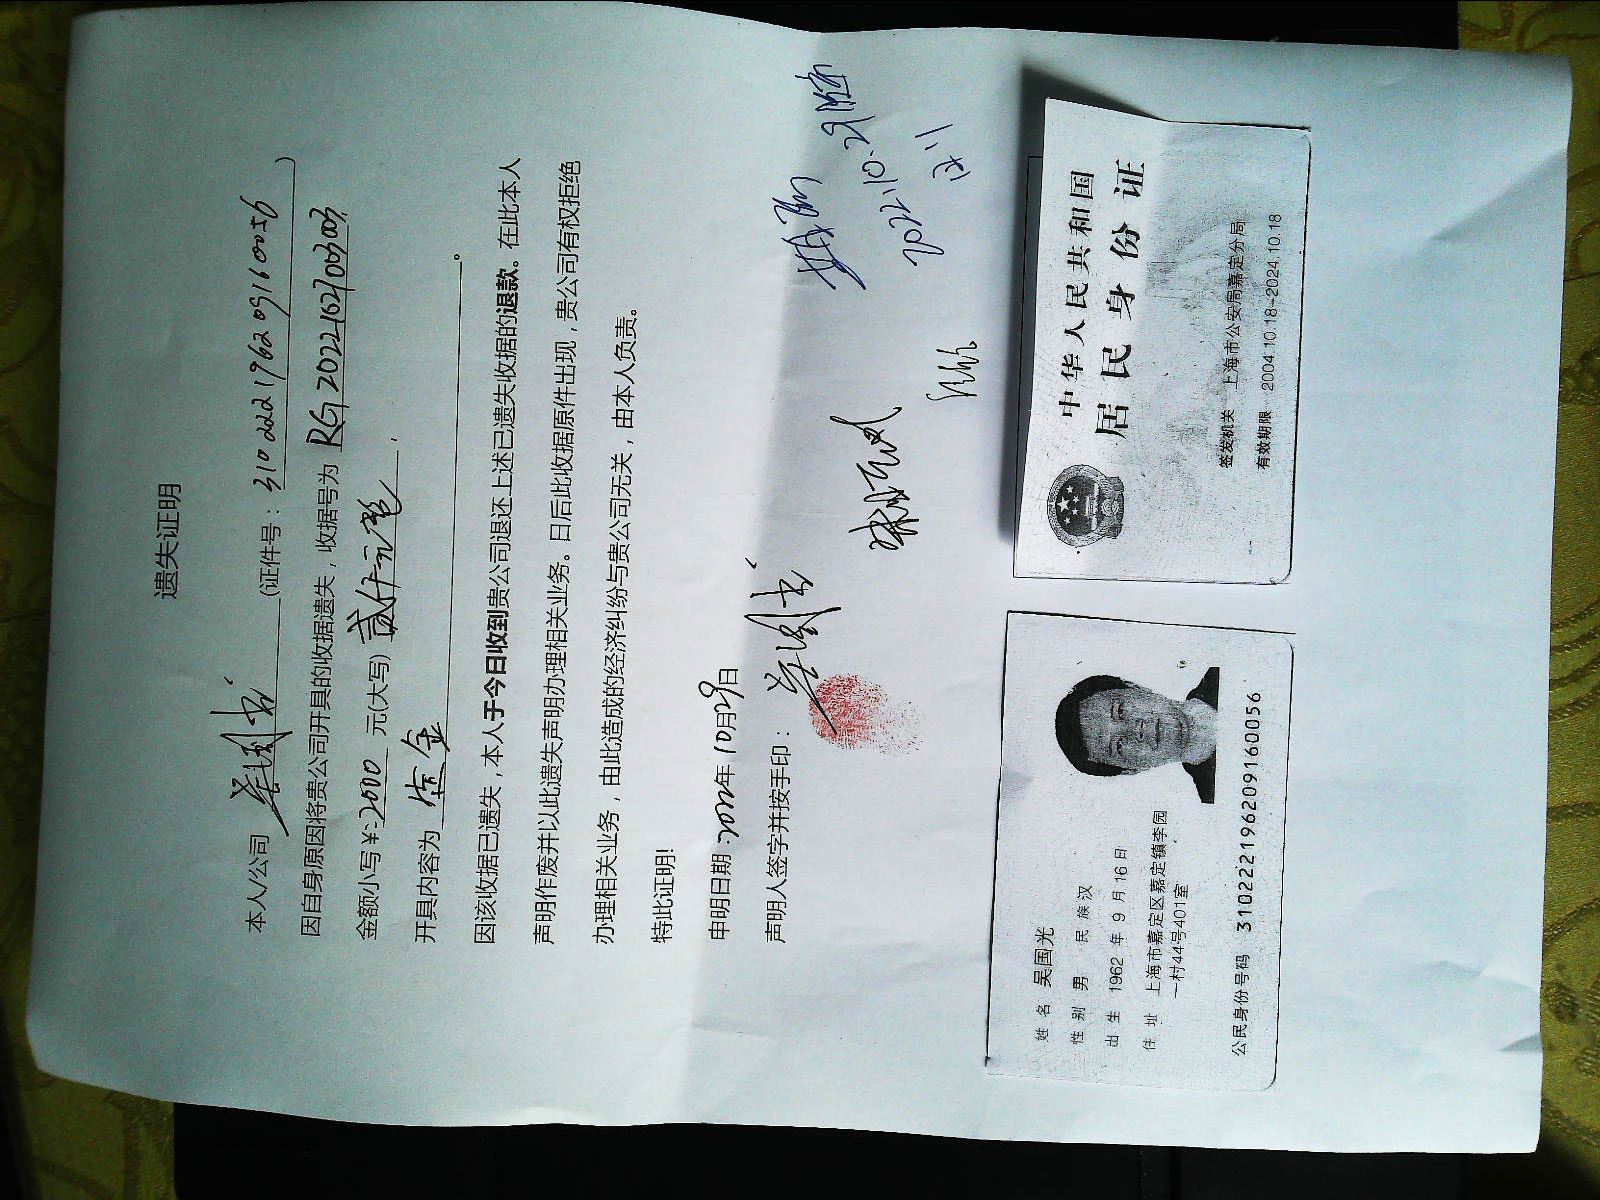 遗失证明
本人/公司 吴国光 (证件号：310222196209160056)
因自身原因将贵公司开具的收据遗失，收据号为 RG2022162100300
金额小写￥:2000 元(大写) 贰仟元整，
开具内容为 定金。
因该收据已遗失，本人于今日收到贵公司退还上述已遗失收据的退款。在此本人
声明作废并以此遗失声明办理相关业务。日后此收据原件出现，贵公司有权拒绝
办理相关业务，由此造成的经济纠纷与贵公司无关，由本人负责。
特此证明!
申明日期：2022年10月29日
声明人签字并按手印： 吴国光
2022.10.29
姓名 吴国光
性别 男 民族 汉
出生 1962 年 9 月 16 日
住址 上海市嘉定区嘉定镇李园
一村44号401室
公民身份号码 310222196209160056
中华人民共和国
居民身份证
签发机关 上海市公安局嘉定分局
有效期限 2004.10.18-2024.10.18